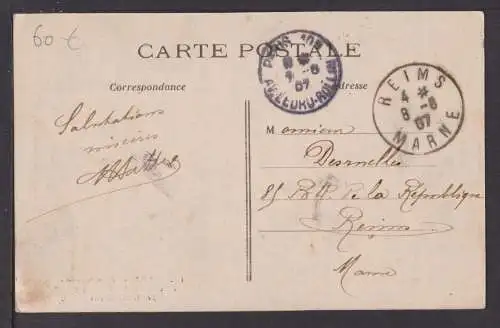 60 €
CARTE POSTALE
Correspondance
Adresse
PARIS 109
7 - 8
07
AV. LEDRU-ROLLIN
REIMS
4 *
8 - 8
07
MARNE
Salutations
sincères
Monsieur
Desruelles
85 Bd. de la République
Reims
Marne